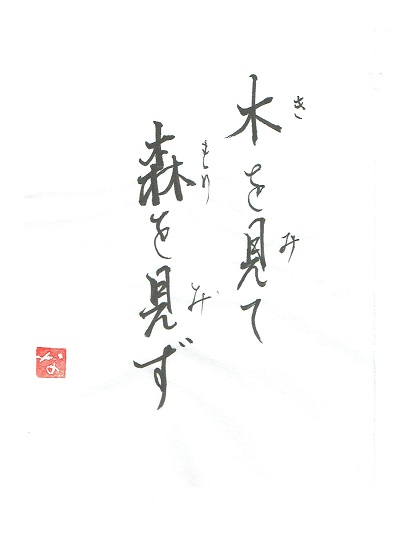 木を見て
き み
森を見ず
もり み